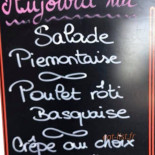 Aujourd'hui
Salade
Piemontaise
Poulet rôti
Basquaise
Crêpe au choix